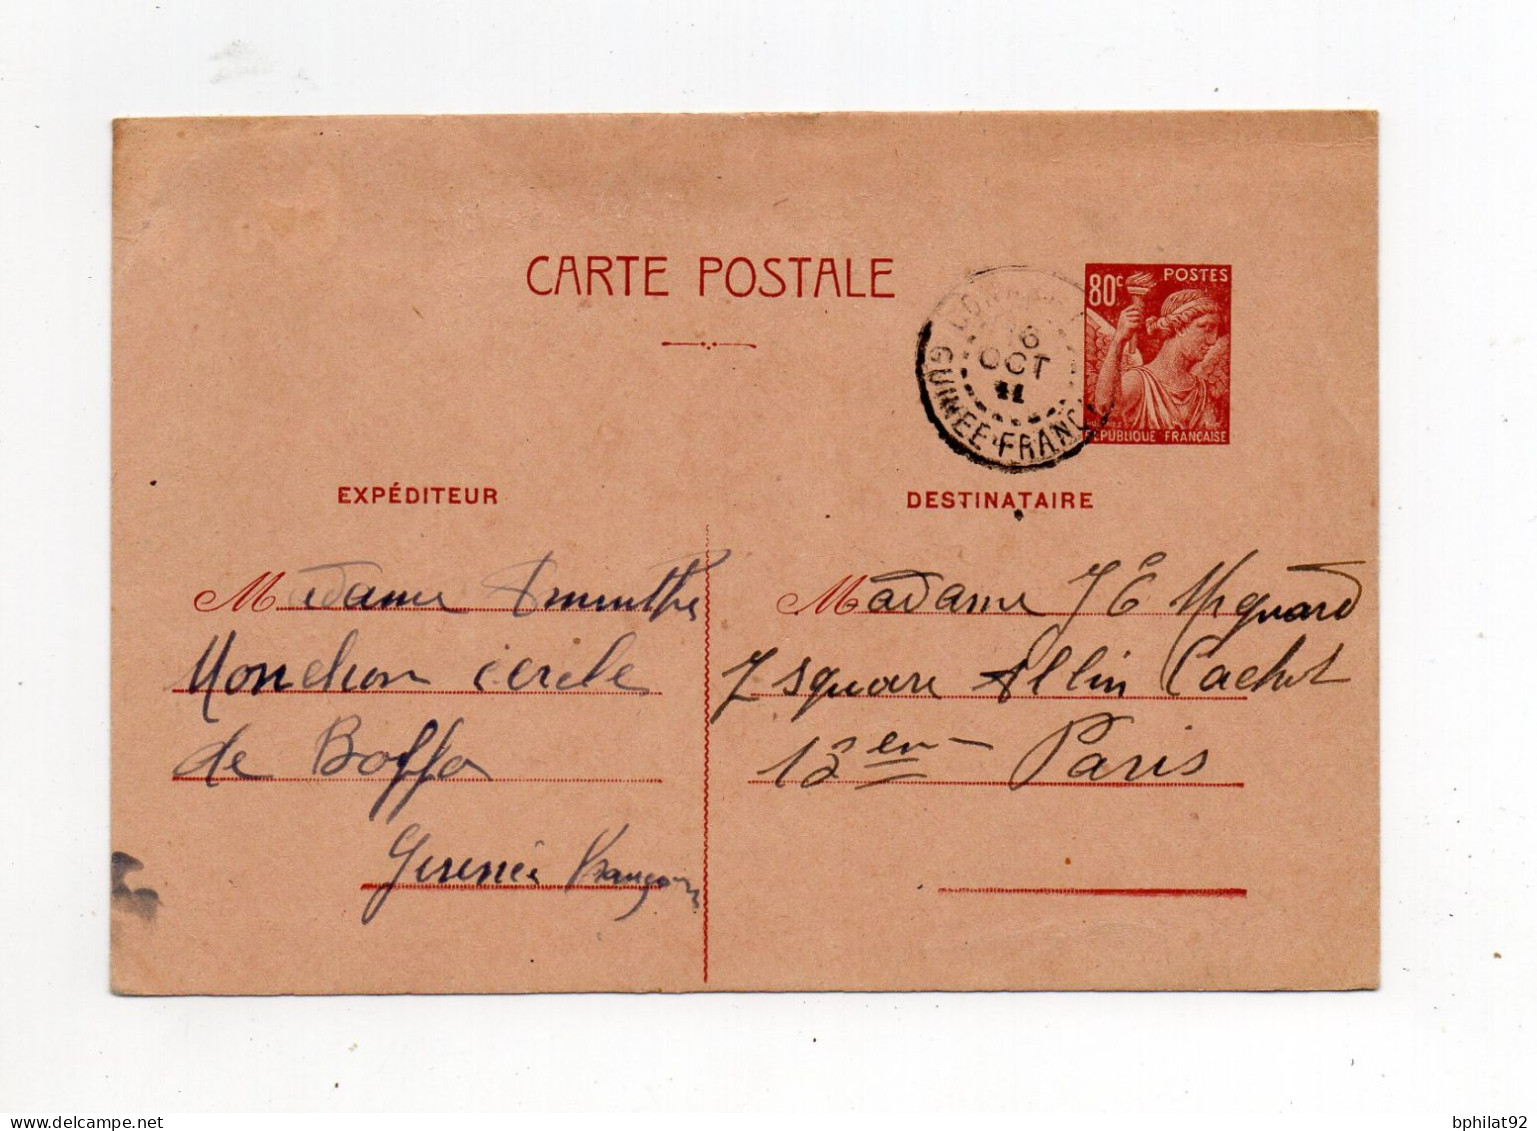 CARTE POSTALE
80c POSTES
RÉPUBLIQUE FRANÇAISE
CONAKRY
16
OCT
41
GUINEE FRANÇ
EXPÉDITEUR
Madame
Monchon cercle
de Boffa
Guinée Française
DESTINATAIRE
Madame J E Mignard
7 square Albin Cachot
13en Paris
bphilat92